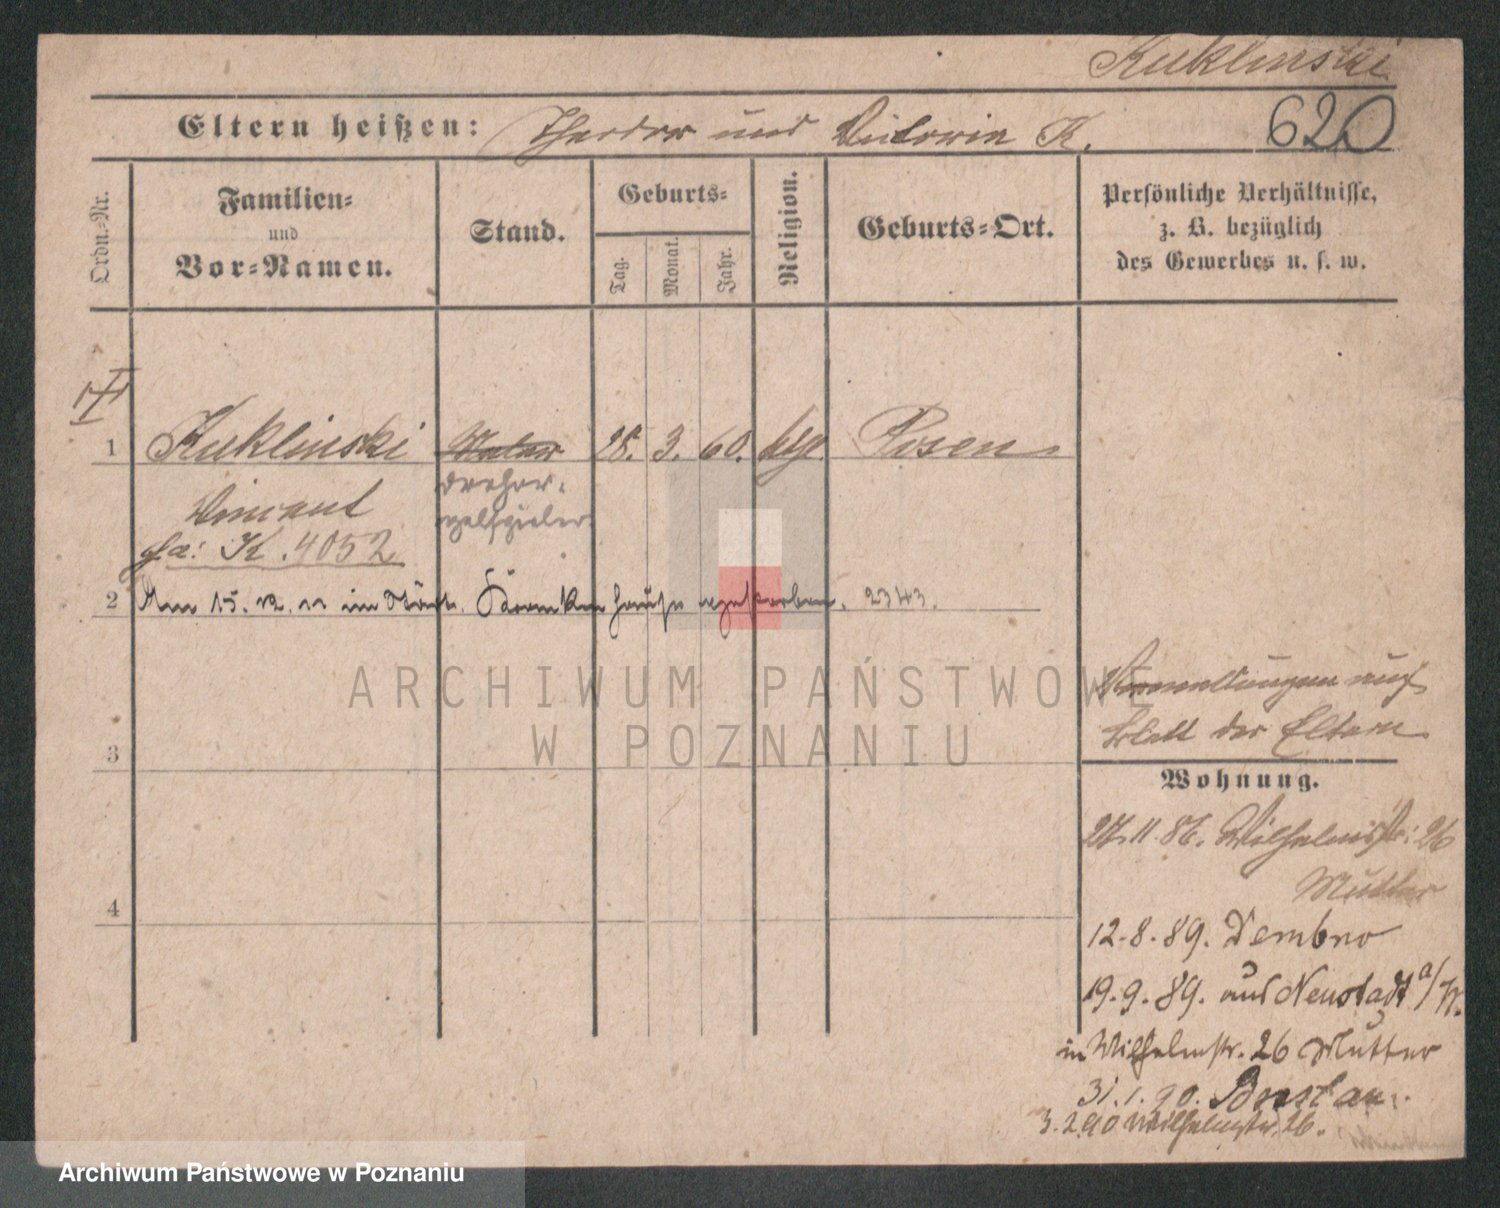 Kuklinski
620
Eltern heißen: Theodor und Victoria K.
Ordn.-Nr.
Familien-
und
Vor-Namen.
Stand.
Geburts-
Tag.
Monat.
Jahr.
Religion.
Geburts-Ort.
Persönliche Verhältnisse,
z. B. bezüglich
des Gewerbes u. s. w.
1 Kuklinski Maler 28. 3. 60. kth. Posen
Vincent
drehor-
gelspieler.
fa: K. 4052
2 Am 15. 12. 11 im Städt. Krankenhause gestorben. 2343.
Vermeldungen auf
Blatt der Eltern
3
Wohnung.
27.11.86. Wilhelmstr: 26
Mutter
4
12.8.89. Dembno
19.9.89. aus Neustadt a/W.
in Wilhelmstr. 26 Mutter
31.1.90. Breslau.
3.2.90 Wilhelmstr. 26.
ARCHIWUM PAŃSTWOWE
W POZNANIU
Archiwum Państwowe w Poznaniu